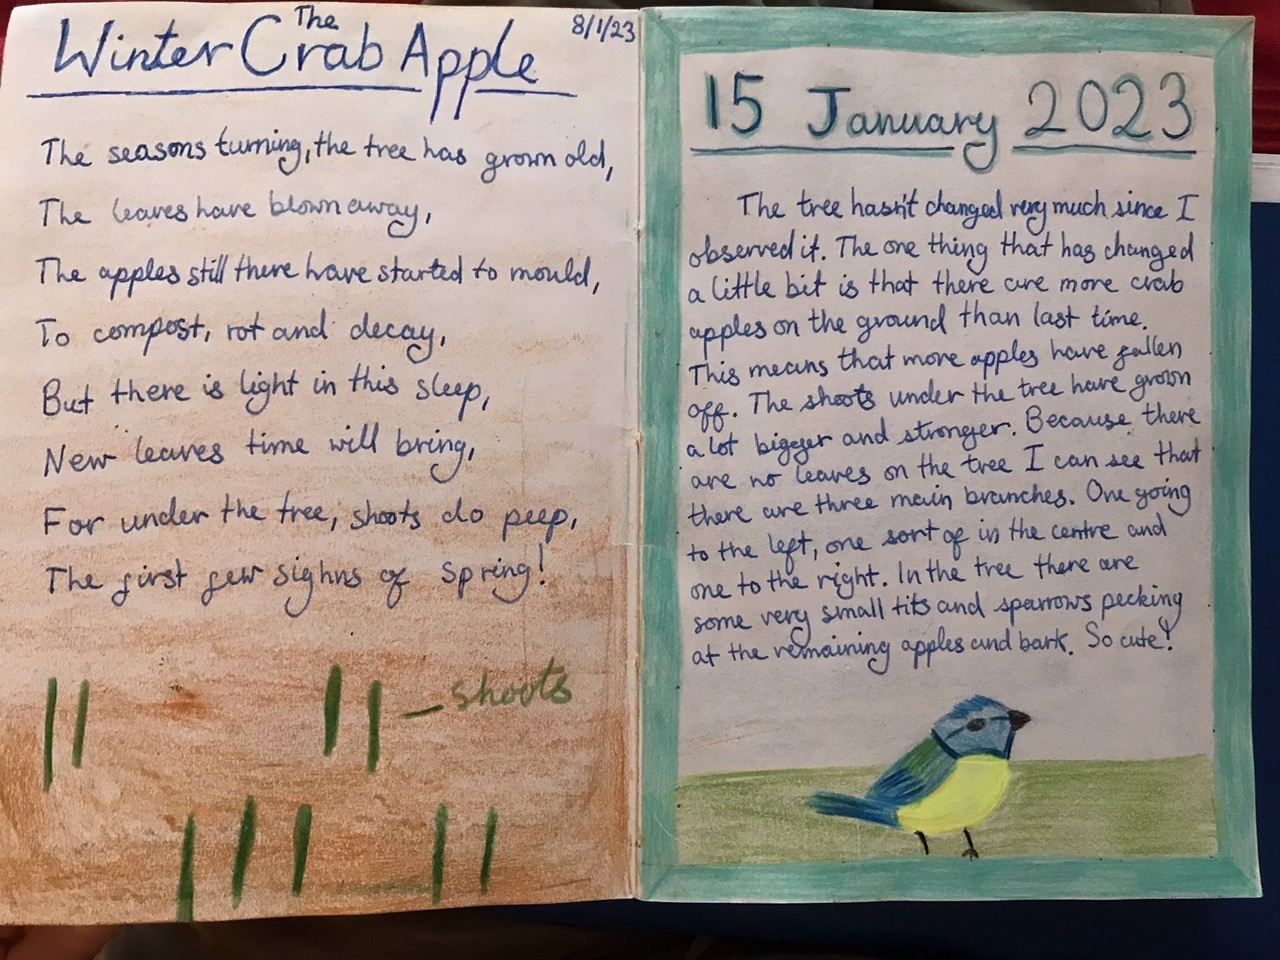 The
Winter Crab Apple
8/1/23
The seasons turning, the tree has grown old,
The leaves have blown away,
The apples still there have started to mould,
To compost, rot and decay,
But there is light in this sleep,
New leaves time will bring,
For under the tree, shoots do peep,
The first few sighns of spring!
shoots
15 January 2023
The tree hasn't changed very much since I
observed it. The one thing that has changed
a little bit is that there are more crab
apples on the ground than last time.
This means that more apples have fallen
off. The shoots under the tree have grown
a lot bigger and stronger. Because there
are no leaves on the tree I can see that
there are three main branches. One going
to the left, one sort of in the centre and
one to the right. In the tree there are
some very small tits and sparrows pecking
at the remaining apples and bark. So cute!